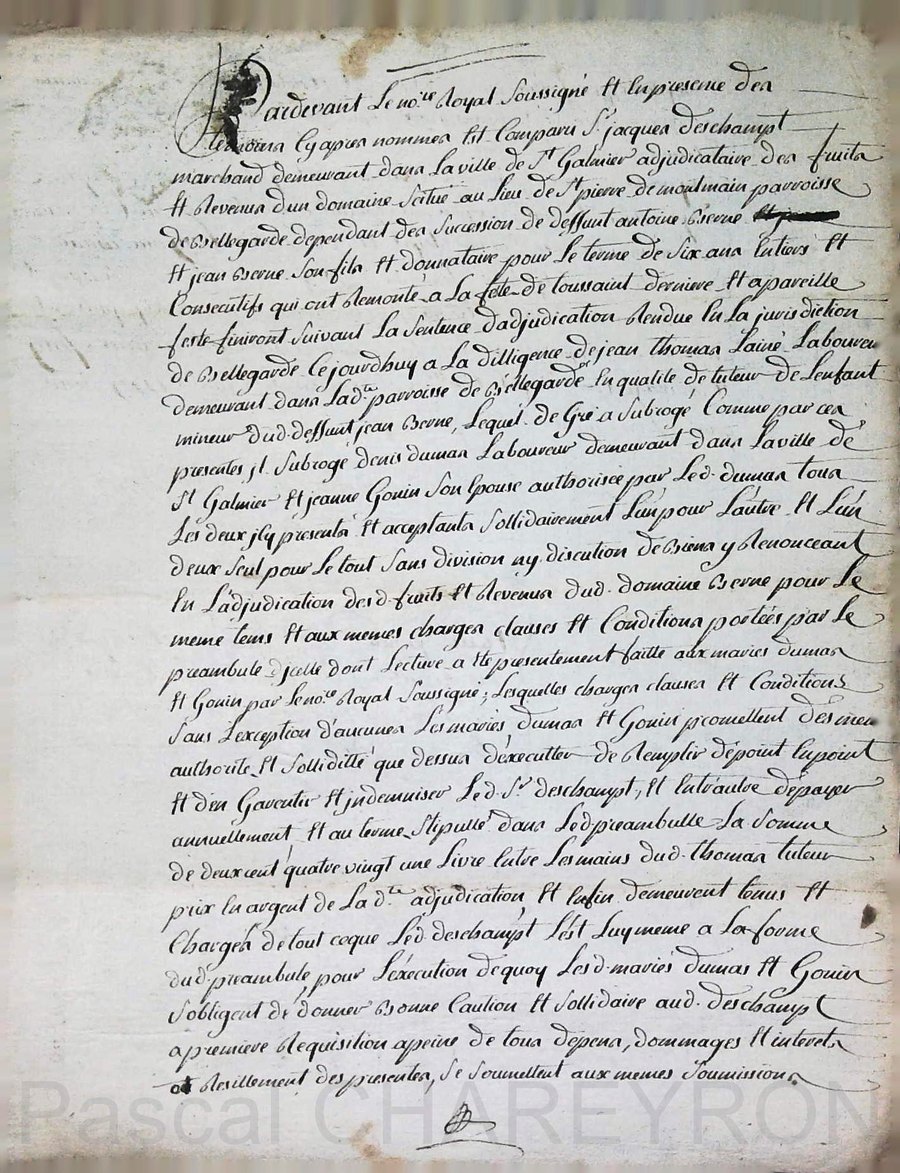 Pardevant Le no.re Royal Soussigné Et En presence des
temoins Cy apres nommes Est Comparu S.r jacques deschampt
marchand demeurant dans La ville de S.t Galmier adjudicataire des fruits
Et Revenus dun domaine Scitué au Lieu de S.t pierre de montmain parroisse
de Bellegarde dependant des Succession de deffunt antoine Berne
Et jean Berne Son fils Et donnataire pour Le terme de Six ans Entiers Et
Consecutifs qui ont Remonté a La fête de toussaint derniere Et a pareille
feste finiront Suivant La Sentence dadjudication Rendue En La jurisdiction
de Bellegarde Cejourdhuy a La dilligence de jean thomas Lainé Laboureur
demeurant dans Lad.te parroisse de Bellegarde En qualité de tuteur de Lenfant
mineur dud. deffunt jean Berne, Lequel de Gré a Subrogé Comme par ces
presentes jl Subroge denis dumas Laboureur demeurant dans La ville de
S.t Galmier Et jeanne Gonin Son Epouse authorisée par Led. dumas tous
Les deux jly presents Et acceptants Sollidairement Lun pour Lautre Et Lun
deux Seul pour Le tout Sans division ny discution de Biens y Renonceant
En Ladjudication desd. fruits Et Revenus dud. domaine Berne pour Le
meme tems Et aux memes charges clauses Et Conditions portées par Le
preambule djcelle dont Lecture a Eté presentement faitte aux mariés dumas
Et Gonin par Le no.re Royal Soussigné; Lesquelles charges clauses Et Conditions
Sans Exception daucunes Les mariés dumas Et Gonin promettent des memes
authorité Et Solliditté que dessus dexecutter de Remplir depoint Enpoint
Et den Garentir Et jndemniser Led. S.r deschampt, Et Entrautre depayer
annuellement Et au terme Stipullé dans Led preambulle La Somme
de deux cent quatre vingt une Livre Entre Les mains dud. thomas tuteur
prix En argent de La d.te adjudication Et Enfin demeurent tenus Et
Chargés de tout ceque Led. deschampt Lest Luy meme a La forme
dud. preambule, pour Lexecution dequoy Lesd. mariés dumas Et Gonin
Sobligent de donner Bonne Caution Et Sollidaire aud. deschampt
a premiere Requisition apeine de tous depens, dommages Et interets
Et Resillement des presentes, Se Soumettent aux memes Soumissions
Pascal CHAREYRON